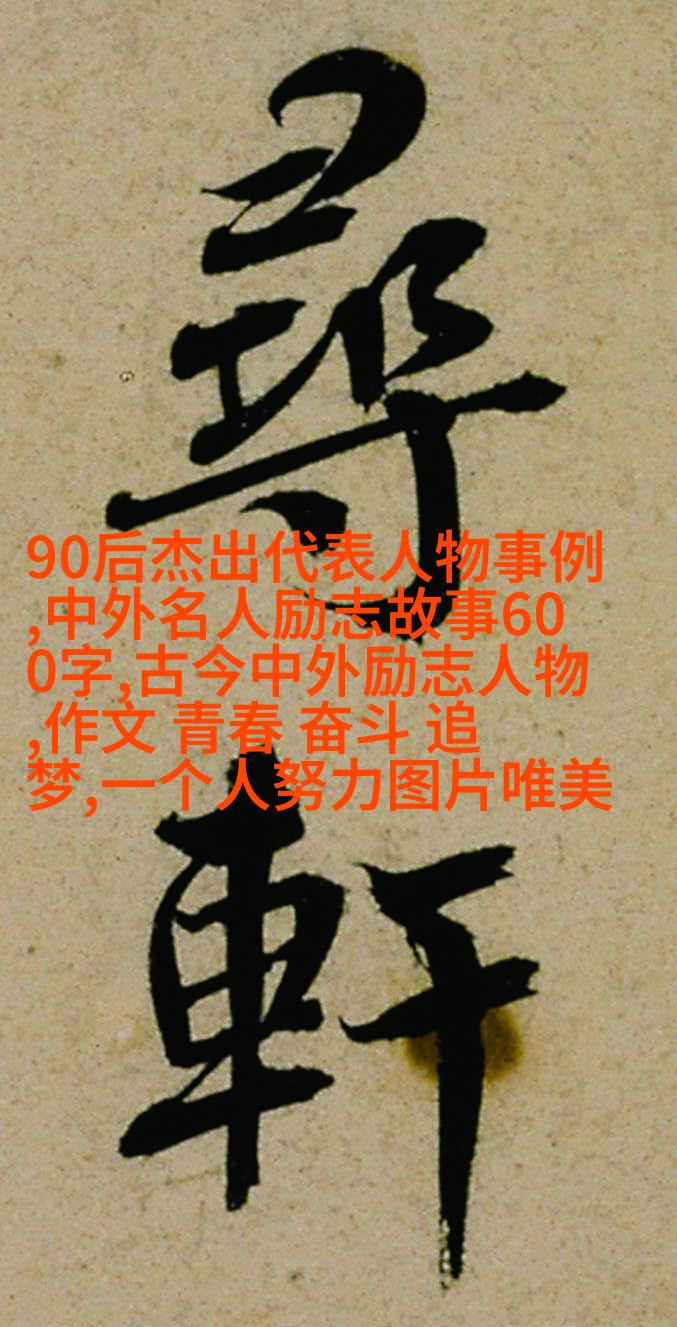 尋
軒
90后杰出代表人物事例
,中外名人励志故事60
0字,古今中外励志人物
,作文 青春 奋斗 追
梦,一个人努力图片唯美